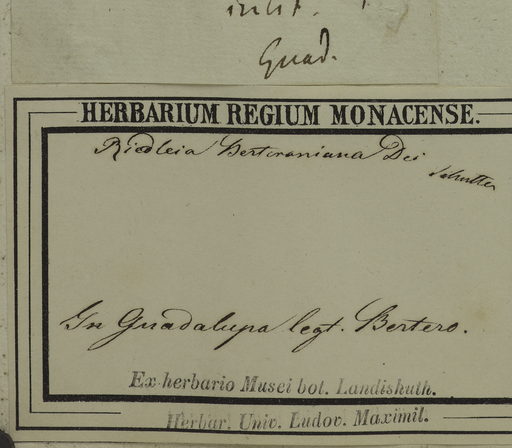 inlit.
Guad.
HERBARIUM REGIUM MONACENSE.
Ricoleia Berteroniana Dei
In Guadalupa legt. Bertero.
Ex herbario Musei bot. Landishuth.
Herbar. Univ. Ludov. Maximil.